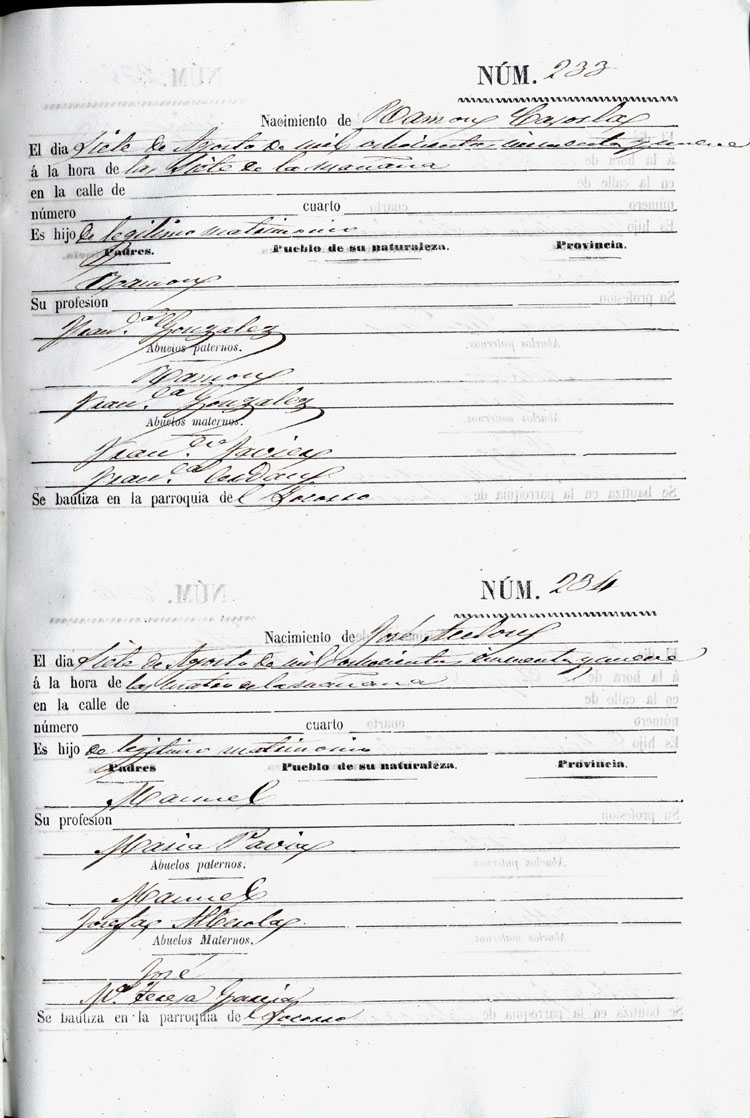 NÚM. 233
Nacimiento de Ramon Cazorla
El dia Siete de Agosto de mil ochocientos cincuenta y nueve
á la hora de las Siete de la mañana
en la calle de
número cuarto
Es hijo de legitimo matrimonio
Padres. Pueblo de su naturaleza. Provincia.
Ramon
Su profesion
Fran.ca Gonzalez
Abuelos paternos.
Ramon
Fran.ca Gonzalez
Abuelos maternos.
Fran.co Javier
Fran.ca Cerdan
Se bautiza en la parroquia de l Socorro
NÚM. 234
Nacimiento de José Antón
El dia Siete de Agosto de mil ochocientos cincuenta y nueve
á la hora de las cuatro de la mañana
en la calle de
número cuarto
Es hijo de legitimo matrimonio
Padres Pueblo de su naturaleza. Provincia.
Manuel
Su profesion
Maria
Abuelos paternos.
Manuel
Josefa
Abuelos Maternos.
José
Mª Teresa Garcia
Se bautiza en la parroquia de l Socorro